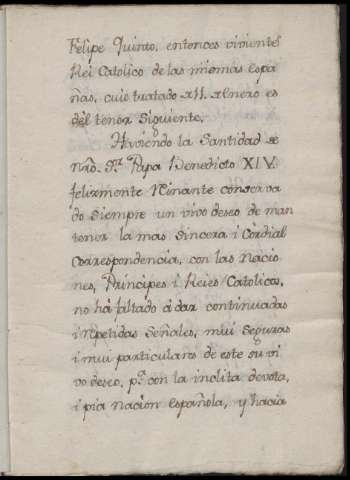 Felipe Quinto, entonces viviente
Rei Catolico de las mismas Espa
ñas, cuio tratado es
del tenor Siguiente.
Haviendo la Santidad de
nrõ. S.r Papa Benedicto XIV.
felizmente Rinante conserva
do siempre un vivo deseo de man
tener la mas Sincera i Cordial
Correspondencia, con las Nacio
nes, Principes i Reies Catolicos,
no há faltado á dar continuadas
i repetidas Señales, mui Seguras
i mui particulares de este su vi
vo deseo, p.a con la inclita devota,
i pia nacion española, y hacia